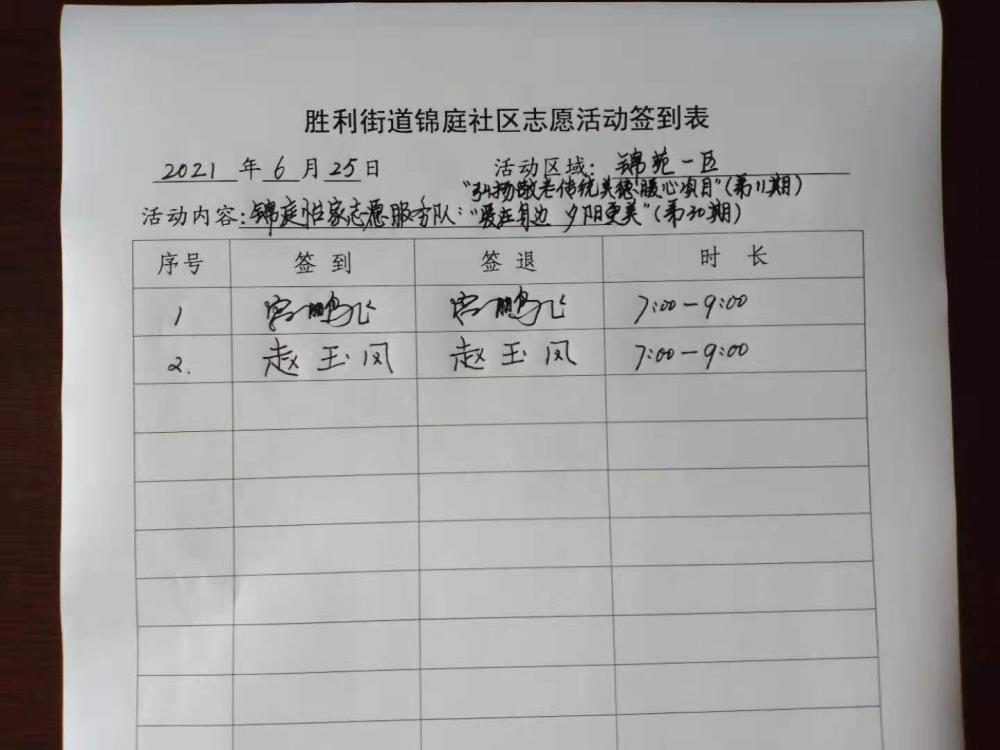 胜利街道锦庭社区志愿活动签到表
2021 年 6 月 25 日 活动区域: 锦苑一区
"弘扬敬老传统美德 暖心项目"(第11期)
活动内容: 锦庭怡家志愿服务队: "爱在身边 夕阳更美"(第30期)
序号 签到 签退 时长
1 宫鹏飞 宫鹏飞 7:00-9:00
2. 赵玉凤 赵玉凤 7:00-9:00